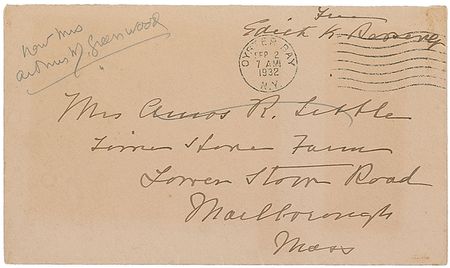 now Mrs
Greenwood
Free
Edith K.
OYSTER BAY
FEB 2
7 AM
1932
N.Y.
Mrs Amos R. Little
Time Stone Farm
Lower Stow Road
Marlborough
Mass